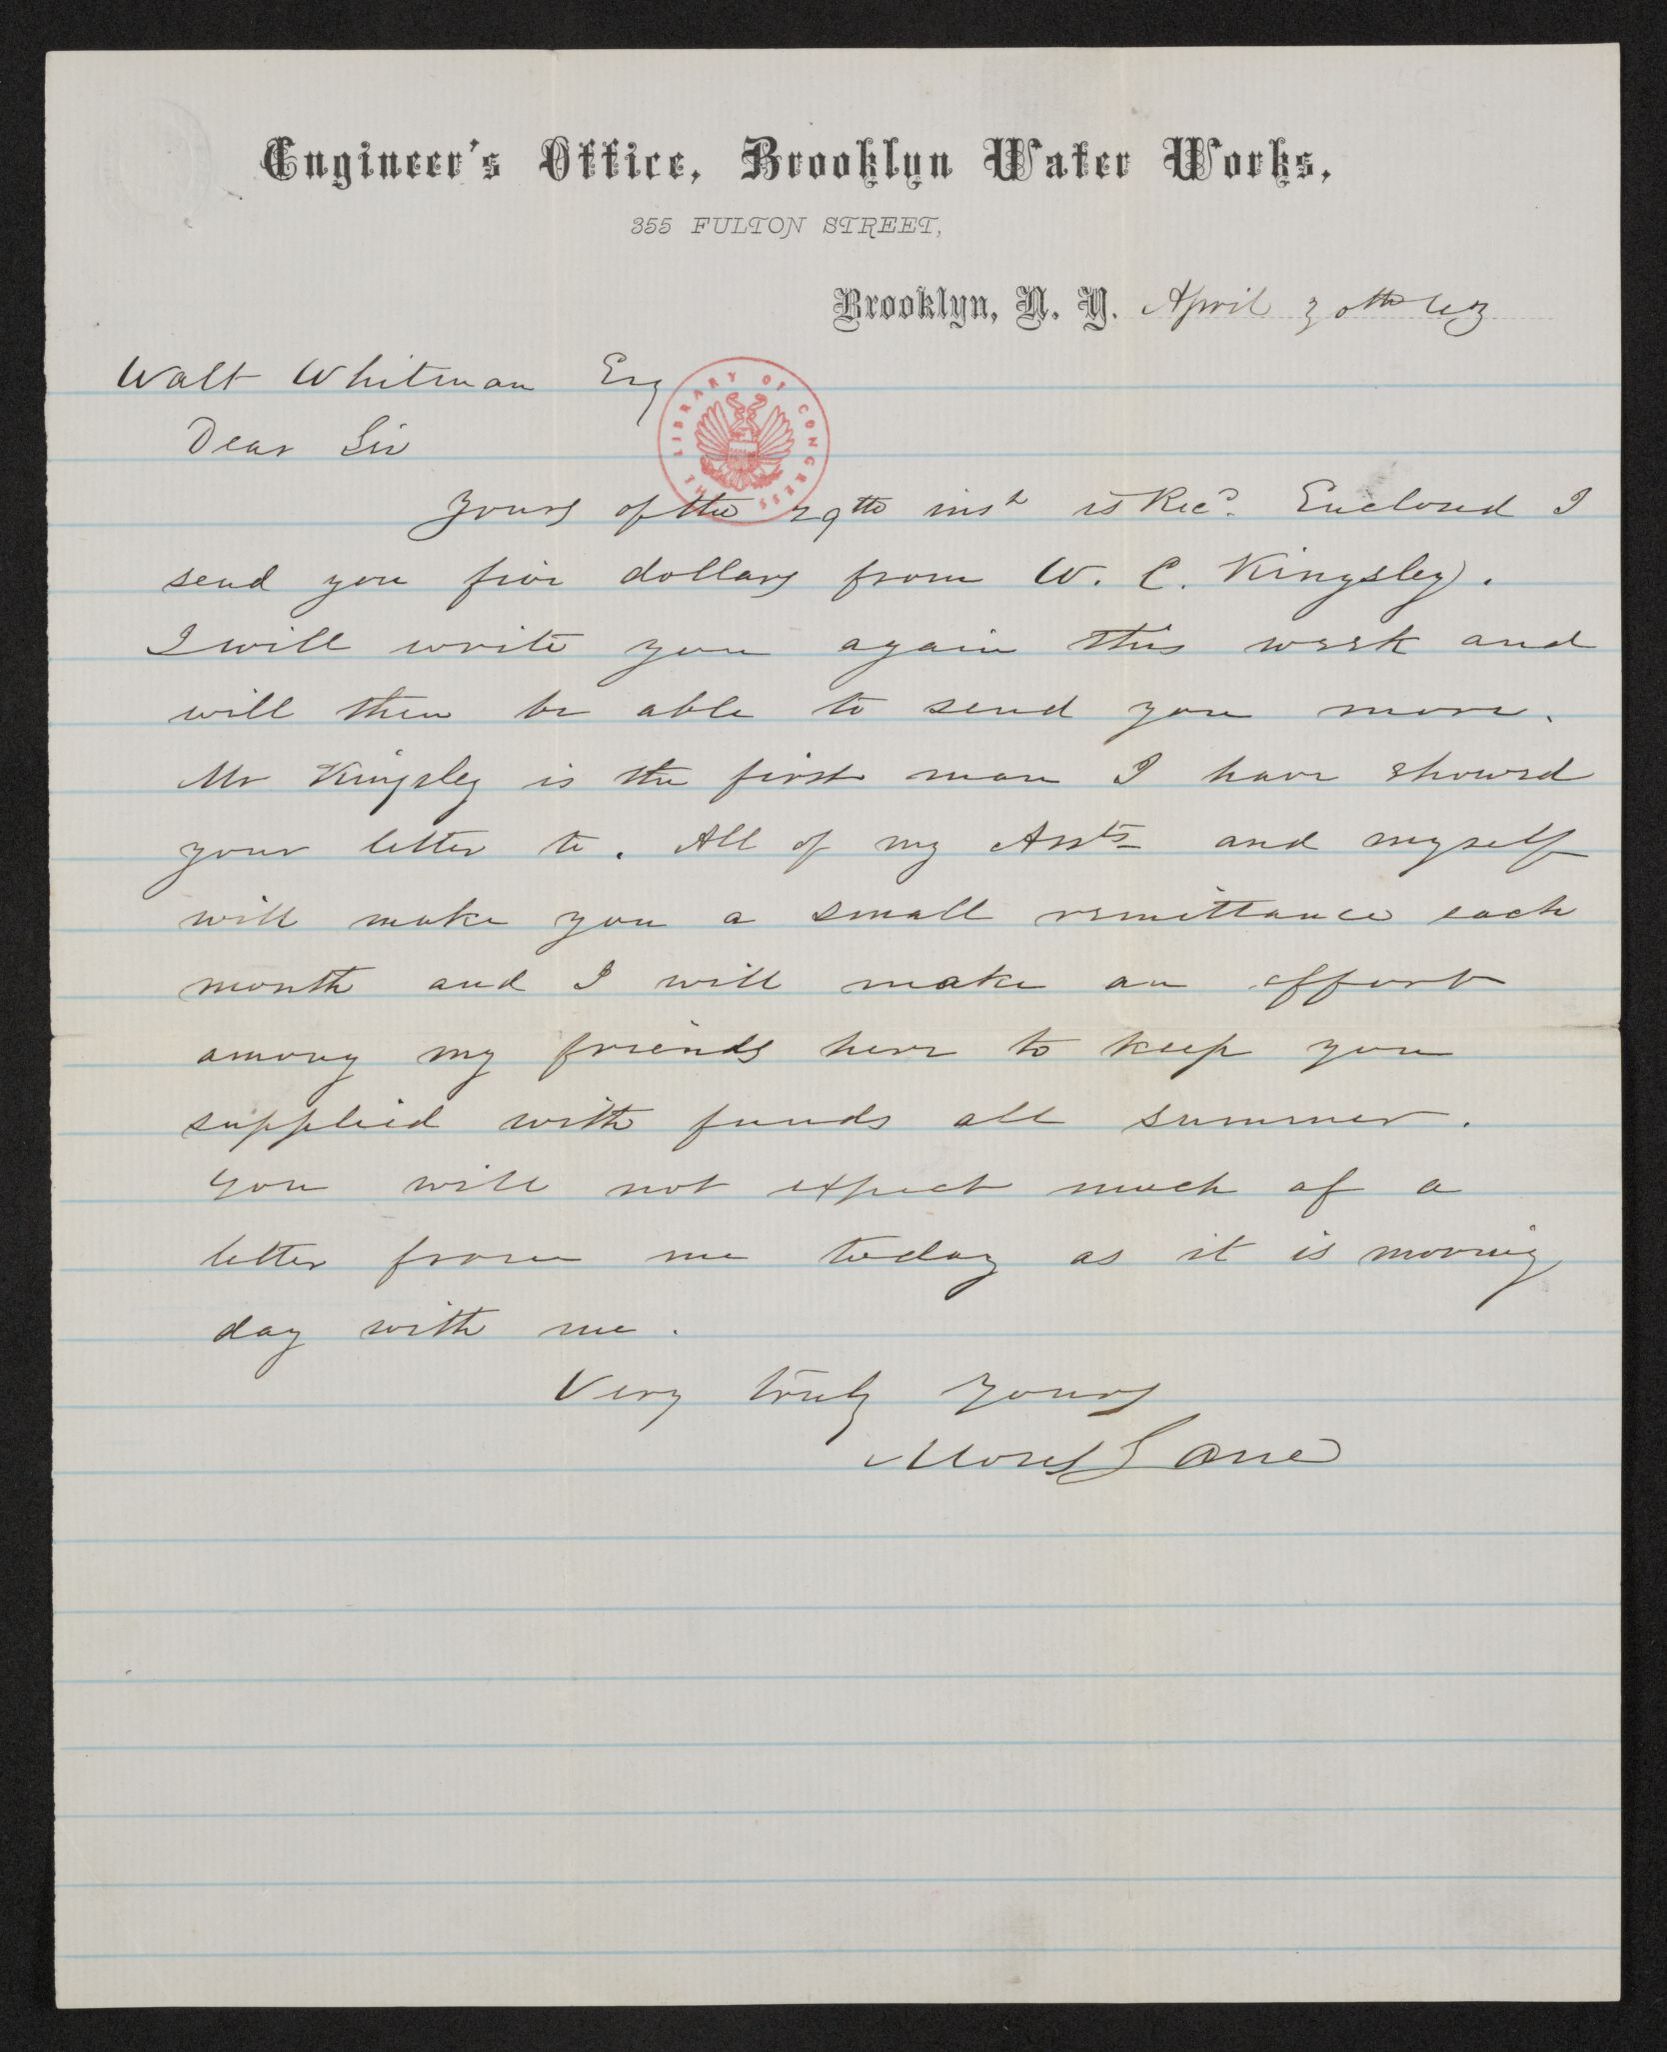 Engineer's Office, Brooklyn Water Works,
355 FULTON STREET,
Brooklyn, N. Y. April 30th 63
Walt Whitman Esq
THE LIBRARY OF CONGRESS
Dear Sir
Yours of the 29th inst is Recd. Enclosed I
send you five dollars from W. C. Kingsley.
I will write you again this week and
will then be able to send you more.
Mr Kingsley is the first man I have showed
your letter to. All of my Assts and myself
will make you a small remittance each
month and I will make an effort
among my friends here to keep you
supplied with funds all summer.
You will not expect much of a
letter from me today as it is moving
day with me.
Very truly Yours
Moses Lane